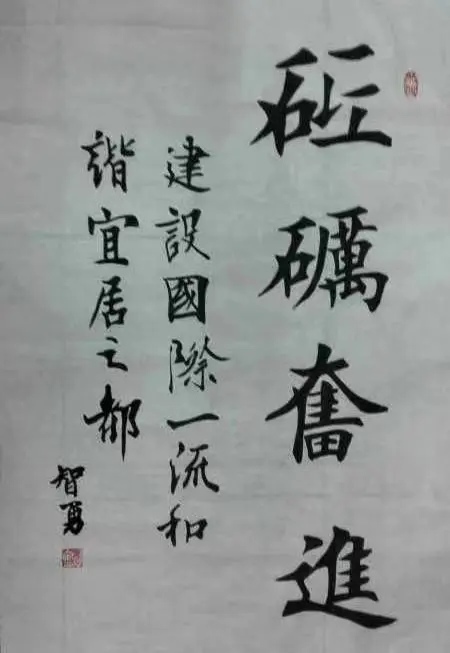 砥礪奮進
建設國際一流和
諧宜居之都
智勇